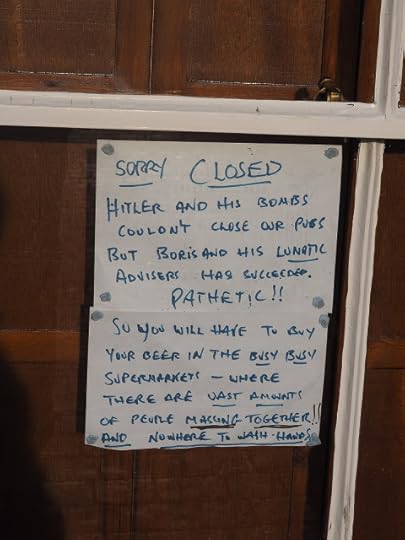 SORRY CLOSED
HITLER AND HIS BOMBS
COULDN'T CLOSE OUR PUBS
BUT BORIS AND HIS LUNATIC
ADVISERS HAS SUCCEEDED.
PATHETIC!!
SO YOU WILL HAVE TO BUY
YOUR BEER IN THE BUSY BUSY
SUPERMARKETS – WHERE
THERE ARE VAST AMOUNTS
OF PEOPLE MASSING TOGETHER!!
AND NOWHERE TO WASH HANDS